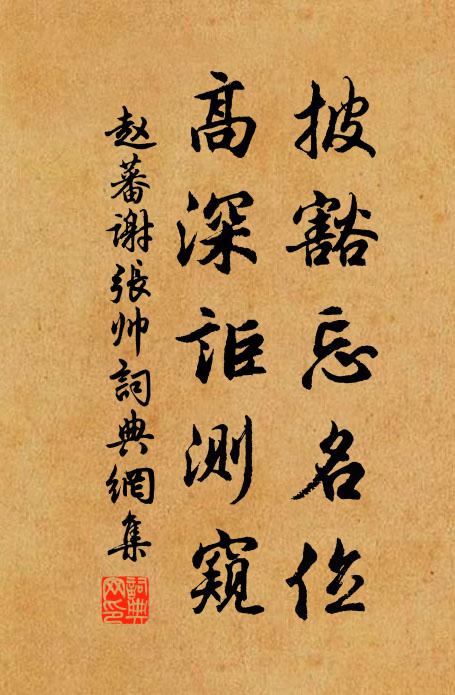 披豁忘名位
高深詎測窺
赵蕃谢張帅詞典網集
詞典网印